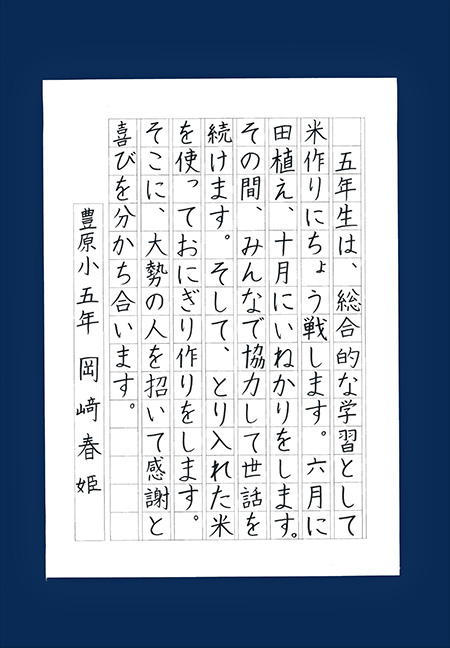 五年生は、総合的な学習として
米作りにちょう戦します。六月に
田植え、十月にいねかりをします。
その間、みんなで協力して世話を
続けます。そして、とり入れた米
を使っておにぎり作りをします。
そこに、大勢の人を招いて感謝と
喜びを分かち合います。
豊原小五年 岡﨑春姫